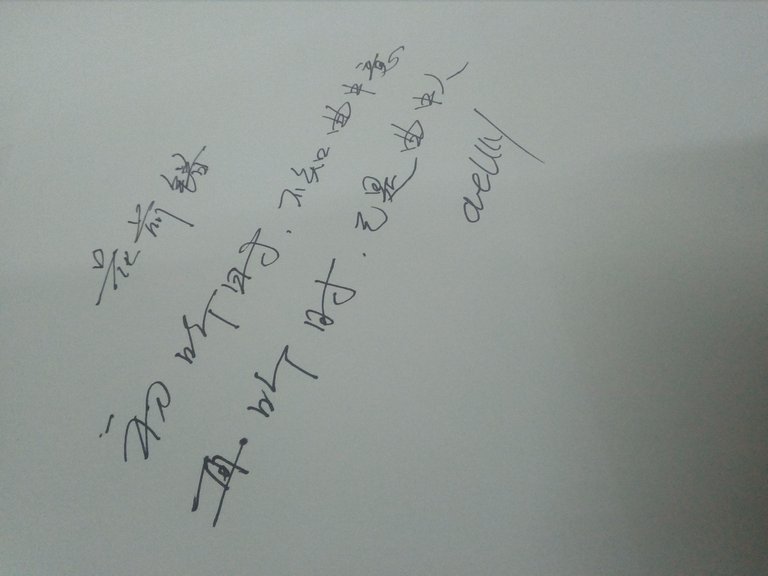 初听时.不知曲中意
再听时.已是曲中人